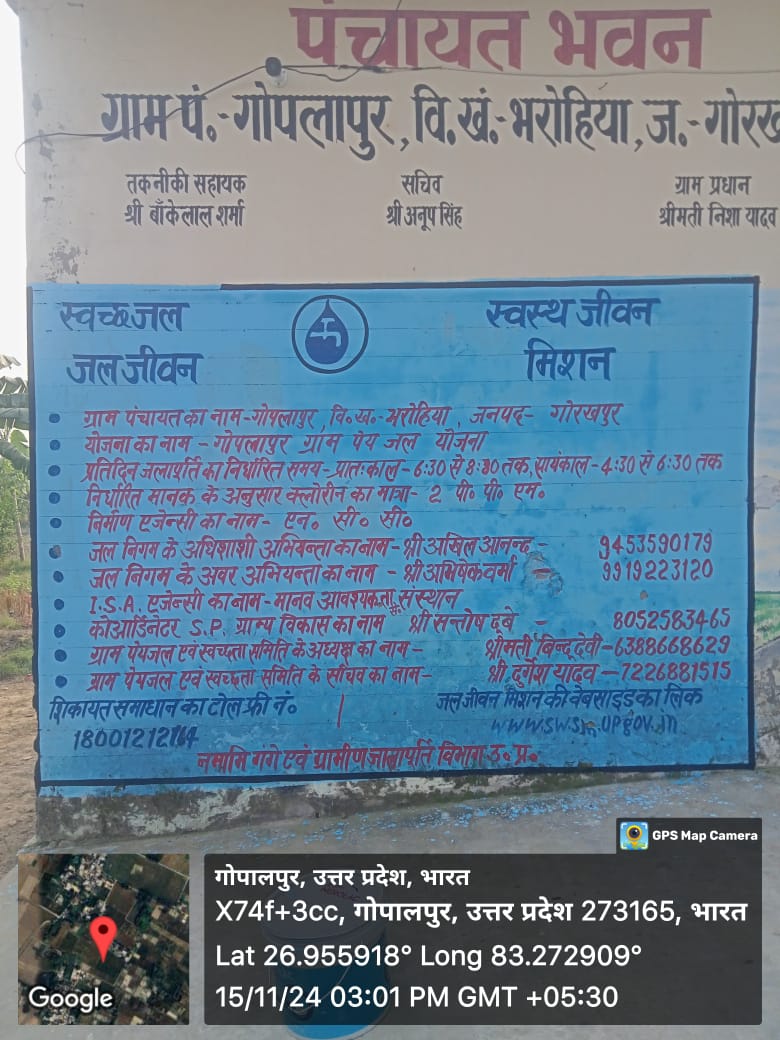 पंचायत भवन
ग्राम पं.-गोपलापुर, वि.खं.-भरोहिया, ज.-गोरख
तकनीकी सहायक सचिव ग्राम प्रधान
श्री बाँकेलाल शर्मा श्री अनूप सिंह श्रीमती निशा यादव
स्वच्छ जल स्वस्थ जीवन
जल जीवन मिशन
• ग्राम पंचायत का नाम-गोपलापुर, वि.ख.-भरोहिया, जनपद- गोरखपुर
• योजना का नाम - गोपलापुर ग्राम पेय जल योजना
• प्रतिदिन जलापूर्ति का निर्धारित समय- प्रातः काल- 6:30 से 8:30 तक, सायंकाल- 4:30 से 6:30 तक
• निर्धारित मानक के अनुसार क्लोरीन का मात्रा- 2 पी० पी० एम०
• निर्माण एजेन्सी का नाम- एन० सी० सी०
• जल निगम के अधिशाशी अभियन्ता का नाम-श्री अखिल आनन्द - 9453590179
• जल निगम के अवर अभियन्ता का नाम - श्री अभिषेक वर्मा 9919223120
• I.S.A. एजेन्सी का नाम- मानव आवश्यकता संस्थान
• कोआर्डिनेटर S.P. ग्राम्य विकास का नाम श्री सन्तोष दूबे - 8052583465
• ग्राम पेयजल एवं स्वच्छता समिति के अध्यक्ष का नाम- श्रीमती बिन्दू देवी-6388668629
• ग्राम पेयजल एवं स्वच्छता समिति के सचिव का नाम- श्री दुर्गेश यादव-7226881515
शिकायत समाधान का टोल फ्री नं० जल जीवन मिशन की वेबसाइड का लिंक
नमामि गंगे एवं ग्रामीण जलापूर्ति विभाग उ० प्र०
GPS Map Camera
गोपालपुर, उत्तर प्रदेश, भारत
X74f+3cc, गोपालपुर, उत्तर प्रदेश 273165, भारत
Lat 26.955918° Long 83.272909°
15/11/24 03:01 PM GMT +05:30
Google